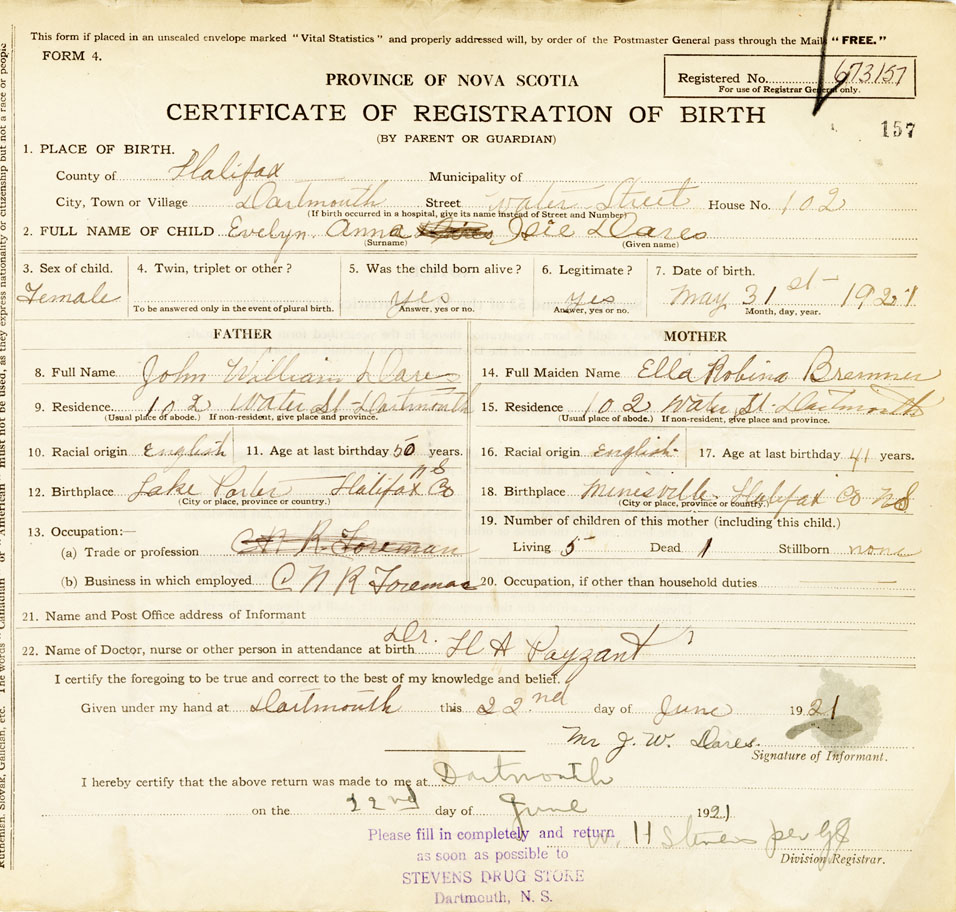 This form if placed in an unsealed envelope marked "Vital Statistics" and properly addressed will, by order of the Postmaster General pass through the Mail "FREE."
FORM 4.
PROVINCE OF NOVA SCOTIA
Registered No. 673157
For use of Registrar General only.
CERTIFICATE OF REGISTRATION OF BIRTH
(BY PARENT OR GUARDIAN)
157
1. PLACE OF BIRTH.
County of Halifax Municipality of
City, Town or Village Dartmouth Street Water Street House No. 102
(If birth occurred in a hospital, give its name instead of Street and Number)
2. FULL NAME OF CHILD Evelyn Anna Dares
(Surname) (Given name)
3. Sex of child. 4. Twin, triplet or other? 5. Was the child born alive? 6. Legitimate? 7. Date of birth.
Female yes yes May 31st - 1921
To be answered only in the event of plural birth. Answer, yes or no. Answer, yes or no. Month, day, year.
FATHER MOTHER
8. Full Name John William Dares 14. Full Maiden Name Ella Robina Bremner
9. Residence 102 Water St- Dartmouth 15. Residence 102 Water St. Dartmouth
(Usual place of abode.) If non-resident, give place and province. (Usual place of abode.) If non-resident, give place and province.
10. Racial origin English 11. Age at last birthday 50 years. 16. Racial origin English 17. Age at last birthday 41 years.
12. Birthplace Lake Porter Halifax Co NS 18. Birthplace Minesville Halifax Co NS
(City or place, province or country.) (City or place, province or country.)
13. Occupation:— 19. Number of children of this mother (including this child.)
(a) Trade or profession C N R. Foreman Living 5 Dead 1 Stillborn none
(b) Business in which employed C N R Foreman 20. Occupation, if other than household duties
21. Name and Post Office address of Informant
22. Name of Doctor, nurse or other person in attendance at birth Dr. H A Payzant
I certify the foregoing to be true and correct to the best of my knowledge and belief.
Given under my hand at Dartmouth this 22nd day of June 1921
Mr J. W. Dares.
Signature of Informant.
I hereby certify that the above return was made to me at Dartmouth
on the 22nd day of June 1921
W. H Stevens per
Division Registrar.
Please fill in completely and return
as soon as possible to
STEVENS DRUG STORE
Dartmouth, N. S.
Ruthenian, Slovak, Galician, etc. The words "Canadian" or "American" must not be used, as they express nationality or citizenship but not a race or people